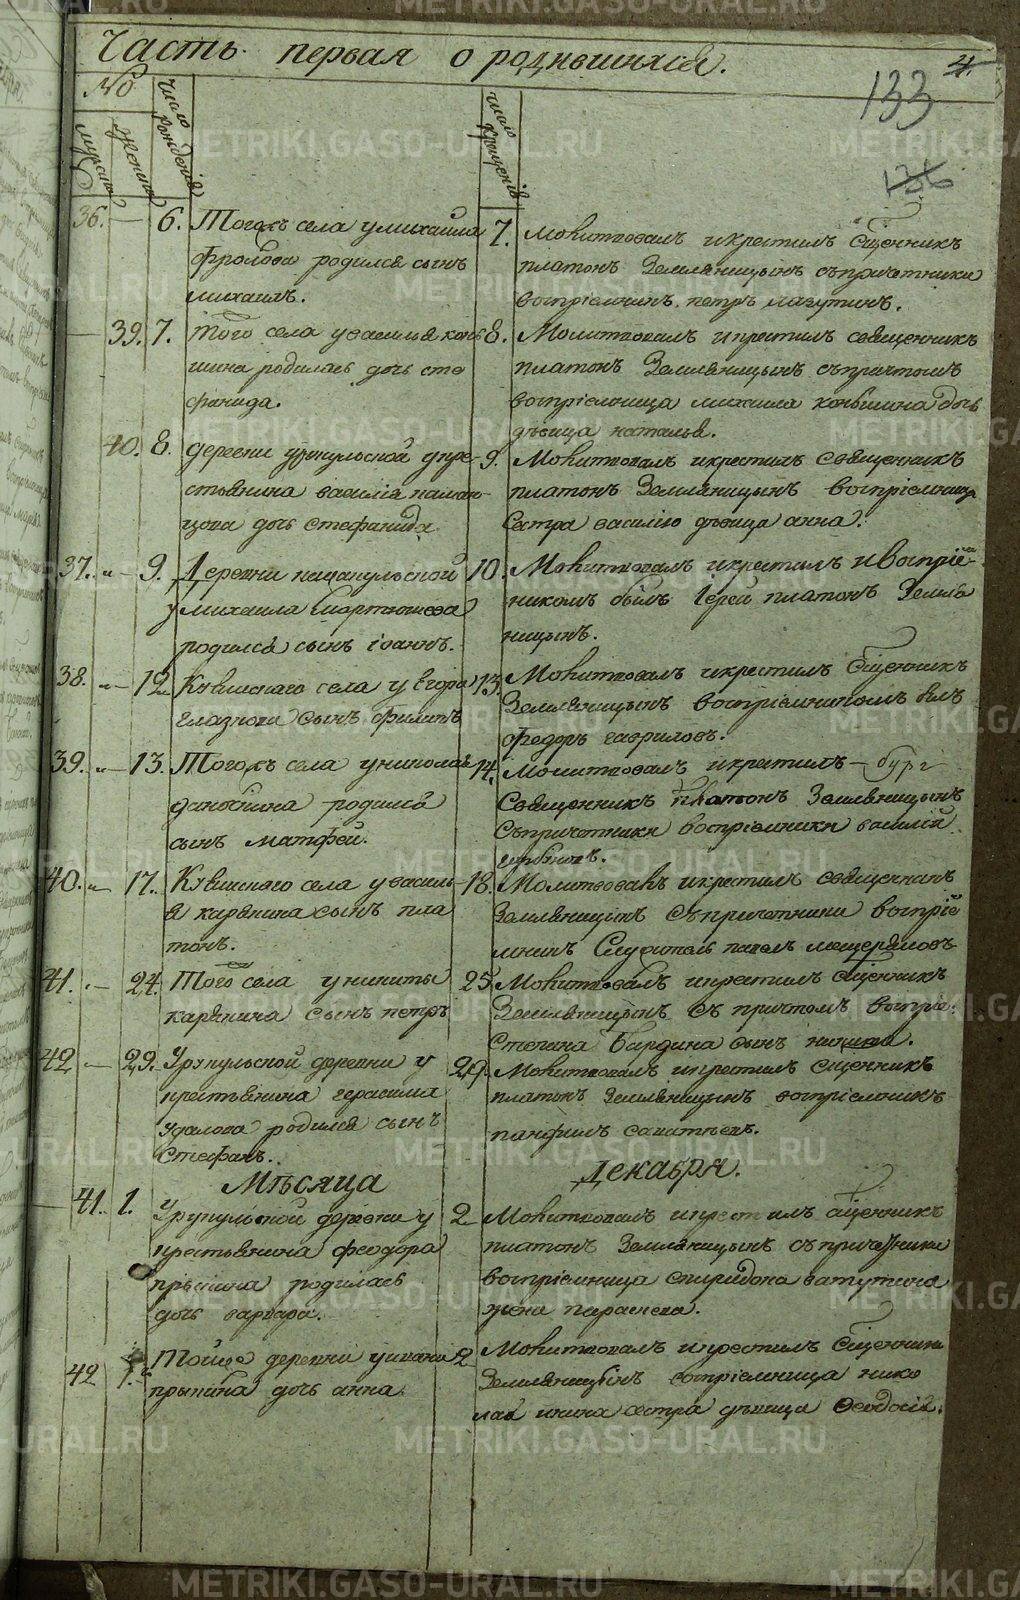 Часть первая о родившихся.
4.
133
136
№
мужеска
женска
число рожденія
число крещенія
36. — 6. Тогожъ села у михаила
Фролова родился сынъ
михаилъ.
7. Молитвовалъ и крестилъ Сщенникъ
платонъ Земляницынъ съ причетники
воспріемникъ петръ лагутинъ.
— 39. 7. того села у василья конь
шина родилась дочь сте
фанида.
8. Молитвовалъ и крестилъ священникъ
платонъ Земляницынъ съ причтомъ
воспріемница михаила коньшина дочь
дѣвица наталья.
40. 8. деревни
стьянина василія
дочь стефанида
9. Молитвовалъ и крестилъ священникъ
платонъ Земляницынъ воспріемница
Сестра василію дѣвица анна.
37. — 9. Деревни
у михаила мартюшева
родился сынъ іоаннъ.
10. Молитвовалъ и крестилъ и воспріе-
никомъ былъ Іерей платонъ Земля
ницынъ.
38. — 12. села у егора
глазкова сынъ филипъ
13. Молитвовалъ и крестилъ Сщенникъ
Земляницынъ воспріемникомъ былъ
Федоръ гавриловъ.
39. — 13. Тогожъ села у николая
родился
сынъ матфей.
14. Молитвовалъ и крестилъ —
Священникъ платонъ Земляницынъ
Съ причетники воспріемники василій
40. — 17. села у василь
я карякина сынъ пла
тонъ.
18. Молитвовалъ и крестилъ священникъ
Земляницынъ съ причетники воспріе
мникъ Служитель павелъ мещеряковъ
41. — 24. Того села у никиты
карякина сынъ петръ
25. Молитвовалъ и крестилъ сщенникъ
Земляницынъ съ причтомъ воспріе:
Степана Бардина сынъ никита.
42 — 29. деревни у
крестьянина герасима
удалова родился сынъ
Стефанъ.
29. Молитвовалъ и крестилъ сщенникъ
платонъ Земляницынъ воспріемникъ
панфилъ савитьевъ.
Мѣсяца Декабря.
— 41. 1. деревни у
крестьянина феодора
родилась
дочь варвара.
2 Молитвовалъ и крестилъ сщенникъ
платонъ Земляницынъ съ причетники
воспріемница спиридона ватутина
жена параскева.
42 1. Тойже деревни у ивана
дочь анна.
2 Молитвовалъ и крестилъ Сщенникъ
Земляницынъ воспріемница нико
лая сестра дѣвица Феодосія.
METRIKI.GASO-URAL.RU